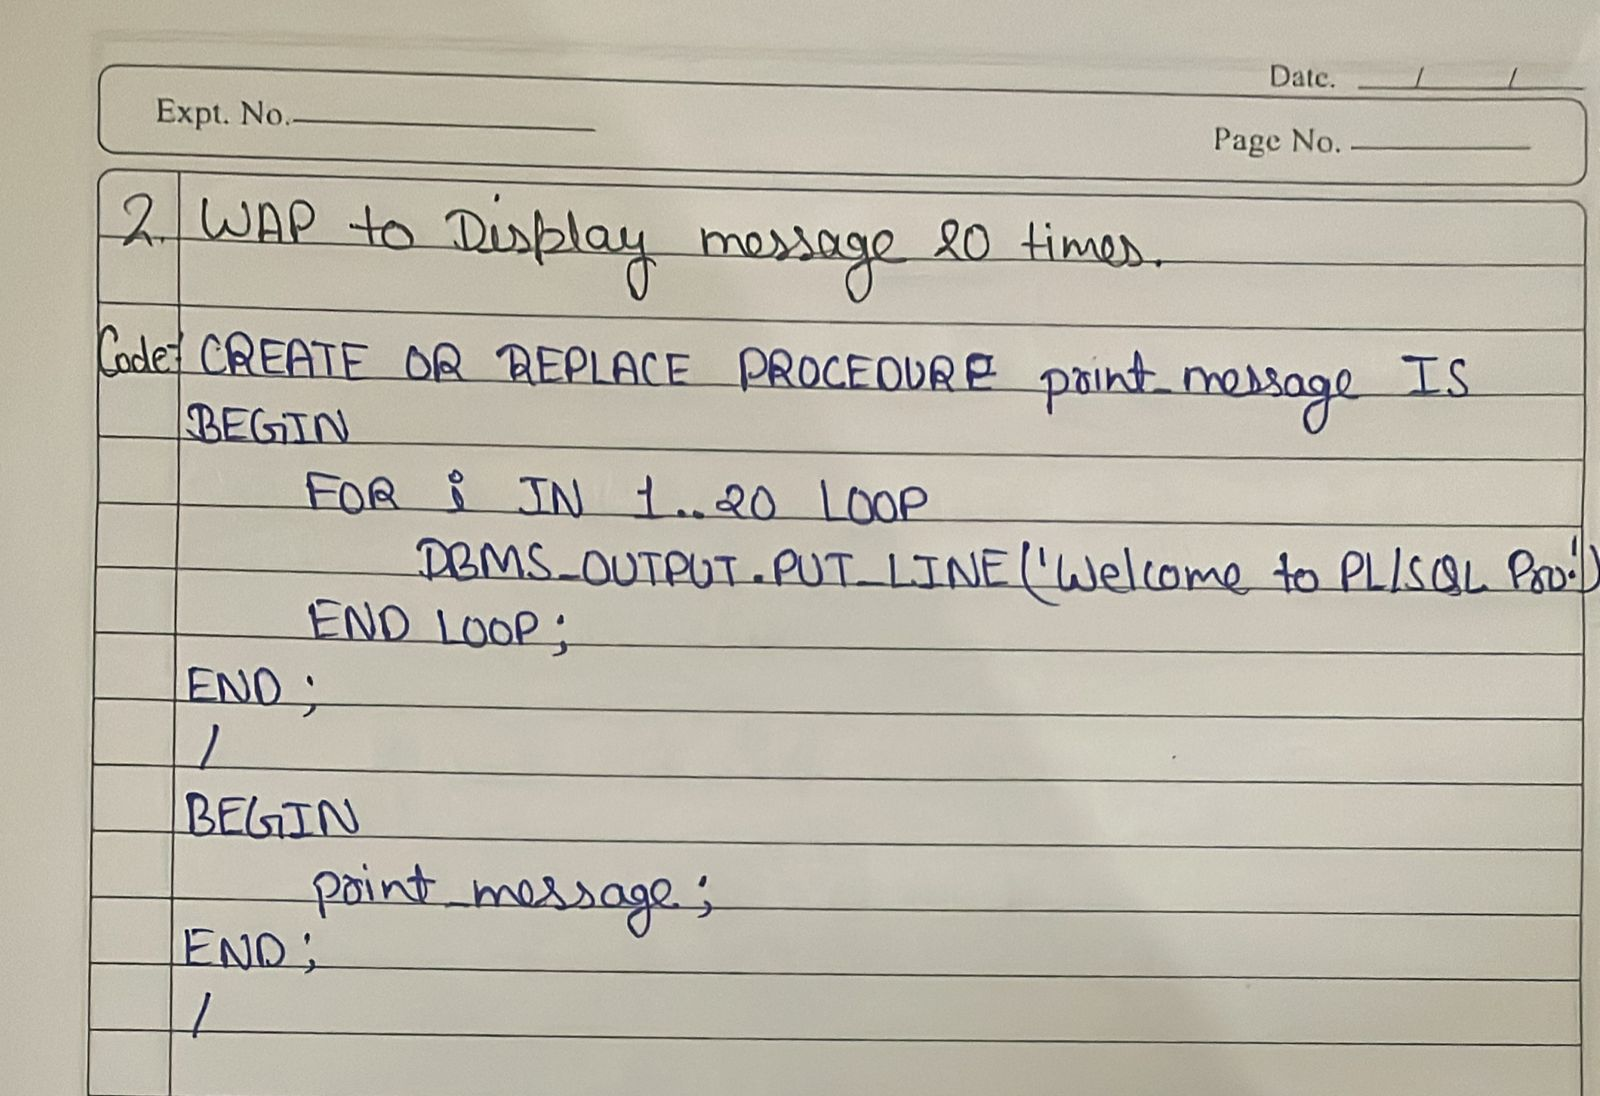 Date. / /
Expt. No.
Page No.
2. WAP to Display message 20 times.
Code: CREATE OR REPLACE PROCEDURE print_message IS
BEGIN
FOR i IN 1..20 LOOP
DBMS_OUTPUT.PUT_LINE('Welcome to PL/SQL Pro!')
END LOOP;
END;
/
BEGIN
print_message;
END;
/